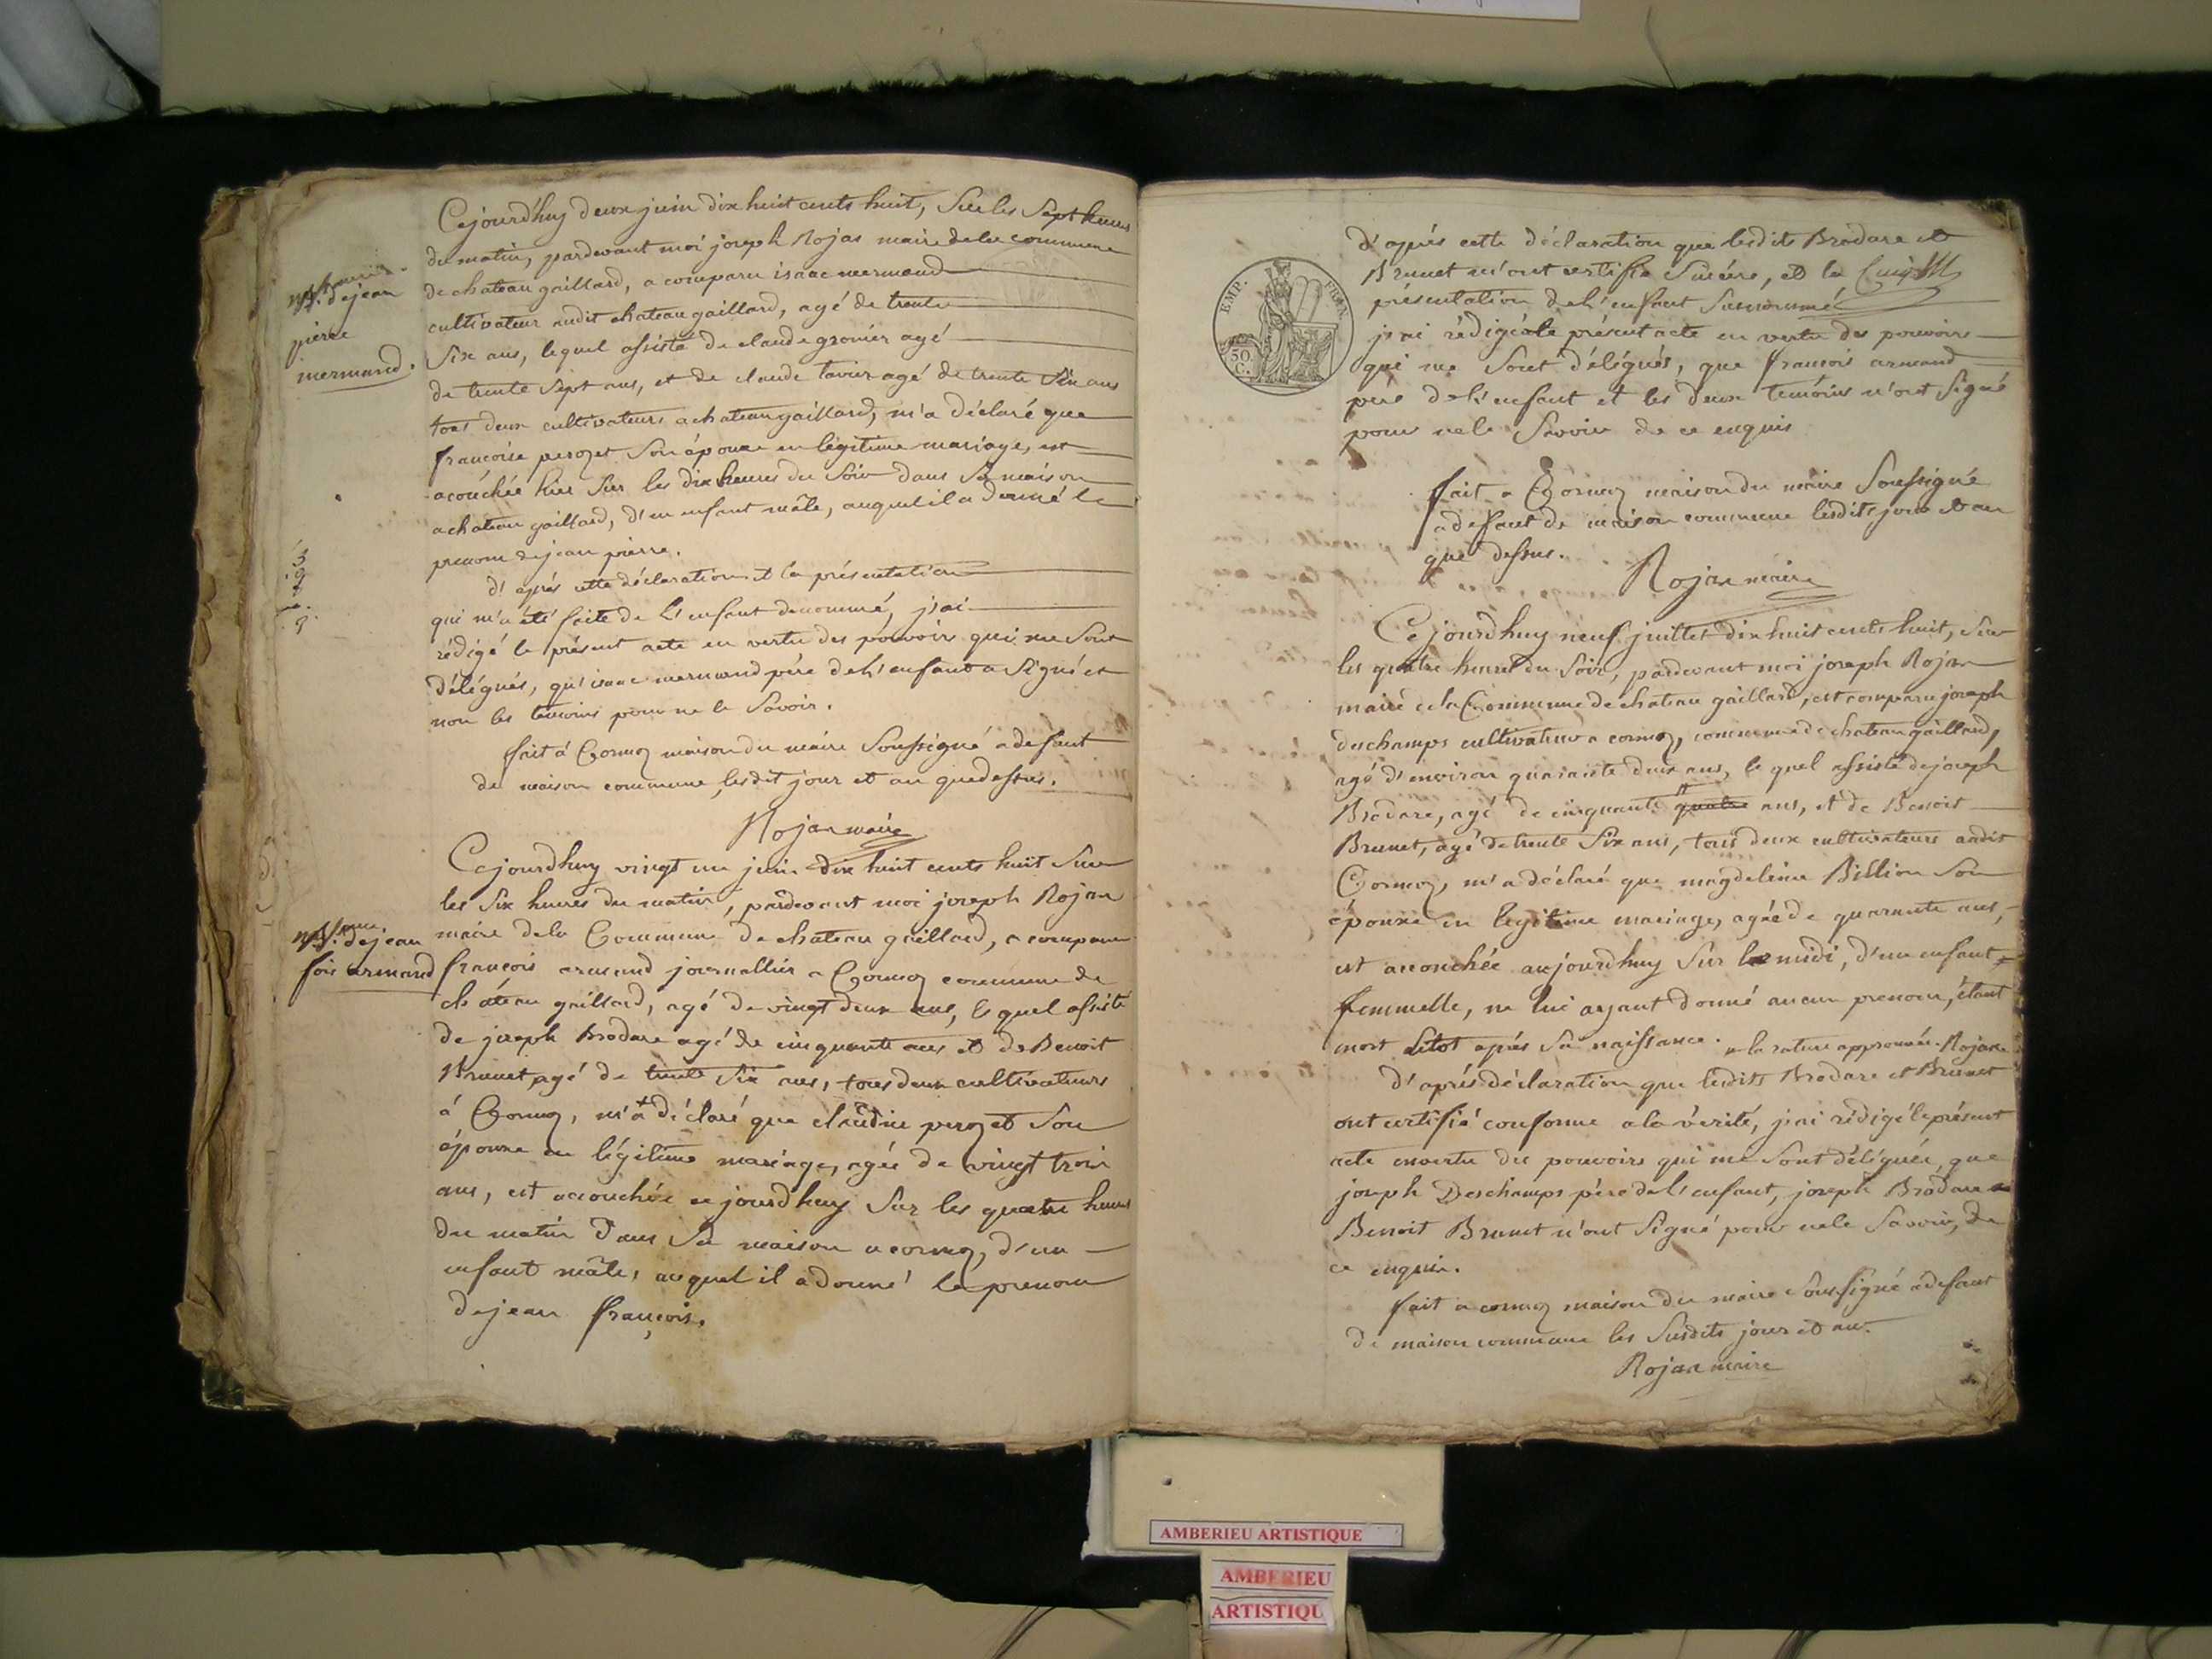 Cejourd'huy deux juin dix huit cents huit, Sur les Sept heures
du matin, pardevant moi joseph Rojas maire de la commune
de chateau gaillard, a comparu isaac mermand
cultivateur audit chateau gaillard, agé de trente
Six ans, lequel assisté de claude gronier agé
de trente Sept ans, et de claude tavier agé de trente Six ans
tous deux cultivateurs a chateau gaillard, m'a déclaré que
francoise perozet Son épouse en légitime mariage, est
acouchée hier Sur les dix heures du Soir dans Sa maison
a chateau gaillard, d'un enfant mâle, auquel il a donné le
prenom de jean pierre.
d'aprés cette déclaration et la présentation
qui m'a été faite de L'enfant denommé, j'ai
rédigé le présent acte en vertu des pouvoirs qui me Sont
délégués, qu'isaac mermand pére de l'enfant a Signé et
non les témoins pour ne le Savoir.
fait á Cormoz maison du maire Soussigné a defaut
de maison commune, lesdit jour et an que dessus.
Rojas maire
de jean
pierre
mermand.
3
9
2
9.
Cejourd'huy vingt un juin dix huit cents huit Sur
les Six heures du matin, pardevant moi joseph Rojas
maire dela Commune de chateau gaillard, a comparu
françois armand journallier a Cormoz commune de
château gaillard, agé de vingt deux ans, lequel assisté
de joseph Brodare agé de cinquante ans et de Benoit
Brunet agé de trente Six ans, tous deux cultivateurs
á Cormoz, m'a déclaré que claudine perozet Son
épouse en légitime mariage, agée de vingt trois
ans, est accouchée aujourd'huy Sur les quatre heures
du matin dans Sa maison a cormoz, d'un
enfant mâle, auquel il a donné le prenom
de jean françois.
de jean
fois armand
EMP. FRAN.
50
C.
d'aprés cette déclaration que lesdits Brodare et
Brunet m'ont certifié Sincére, et la
présentation de l'enfant Susnommé
j'ai rédigé le présent acte en vertu des pouvoirs
qui me Sont délégués, que francois armand
pere de l'enfant et les deux temóins n'ont Signé
pour ne le Savoir de ce enquis
fait a Cormoz maison du maire Soussigné
a defaut de maison commune lesdits jour et an
que dessus.
Rojas maire
Cejourd'huy neuf juillet dix huit cents huit, Sur
les quatre heures du Soir, pardevant moi joseph Rojas
maire de la Commune de chateau gaillard, est comparu joseph
deschamps cultivateur a cormoz, commune de chateau gaillard,
agé d'environ quarante deux ans, lequel assisté de joseph
Brodare, agé de cinquante quatre ans, et de Benoit
Brunet, agé de trente Six ans, tous deux cultivateurs audit
Cormoz, m'a déclaré que magdeleine Billion Son
épouse en legitime mariage, agée de quarante ans,
est accouchée aujourdhuy Sur le midi, d'un enfant
femmelle, ne lui ayant donné aucun prenom, étant
mort sitot aprés Sa naissance. la rature approuvée. Rojas
d'aprés déclaration que lesdits Brodare et Brunet
ont certifié conforme a la vérité, j'ai rédigé le présent
acte en vertu des pouvoirs qui me Sont délégués, que
joseph Deschamps pére de l'enfant, joseph Brodare
Benoit Brunet n'ont Signé pour ne le Savoir, de
ce enquis.
fait a cormoz maison du maire Soussigné a defaut
de maison commune les Susdits jour et an.
Rojas maire
AMBERIEU ARTISTIQUE
AMBERIEU
ARTISTIQU